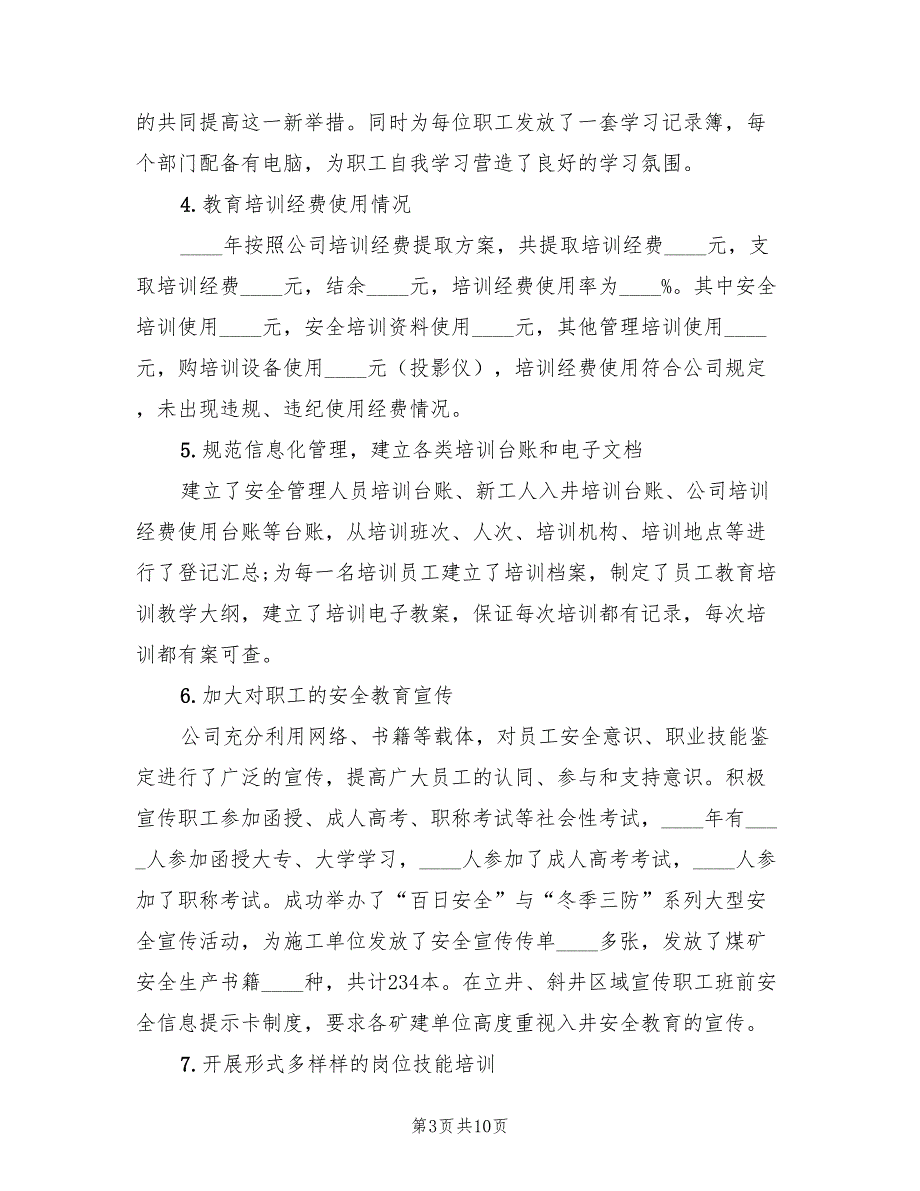 的共同提高这一新举措。同时为每位职工发放了一套学习记录簿，每
个部门配备有电脑，为职工自我学习营造了良好的学习氛围。
4. 教育培训经费使用情况
____年按照公司培训经费提取方案，共提取培训经费____元，支
取培训经费____元，结余____元，培训经费使用率为____%。其中安全
培训使用____元，安全培训资料使用____元，其他管理培训使用____
元，购培训设备使用____元（投影仪），培训经费使用符合公司规定
，未出现违规、违纪使用经费情况。
5. 规范信息化管理，建立各类培训台账和电子文档
建立了安全管理人员培训台账、新工人入井培训台账、公司培训
经费使用台账等台账，从培训班次、人次、培训机构、培训地点等进
行了登记汇总;为每一名培训员工建立了培训档案，制定了员工教育培
训教学大纲，建立了培训电子教案，保证每次培训都有记录，每次培
训都有案可查。
6. 加大对职工的安全教育宣传
公司充分利用网络、书籍等载体，对员工安全意识、职业技能鉴
定进行了广泛的宣传，提高广大员工的认同、参与和支持意识。积极
宣传职工参加函授、成人高考、职称考试等社会性考试，____年有___
_人参加函授大专、大学学习，____人参加了成人高考考试，____人参
加了职称考试。成功举办了“百日安全”与“冬季三防”系列大型安
全宣传活动，为施工单位发放了安全宣传传单____多张，发放了煤矿
安全生产书籍____种，共计234本。在立井、斜井区域宣传职工班前安
全信息提示卡制度，要求各矿建单位高度重视入井安全教育的宣传。
7. 开展形式多样样的岗位技能培训
第3页共10页